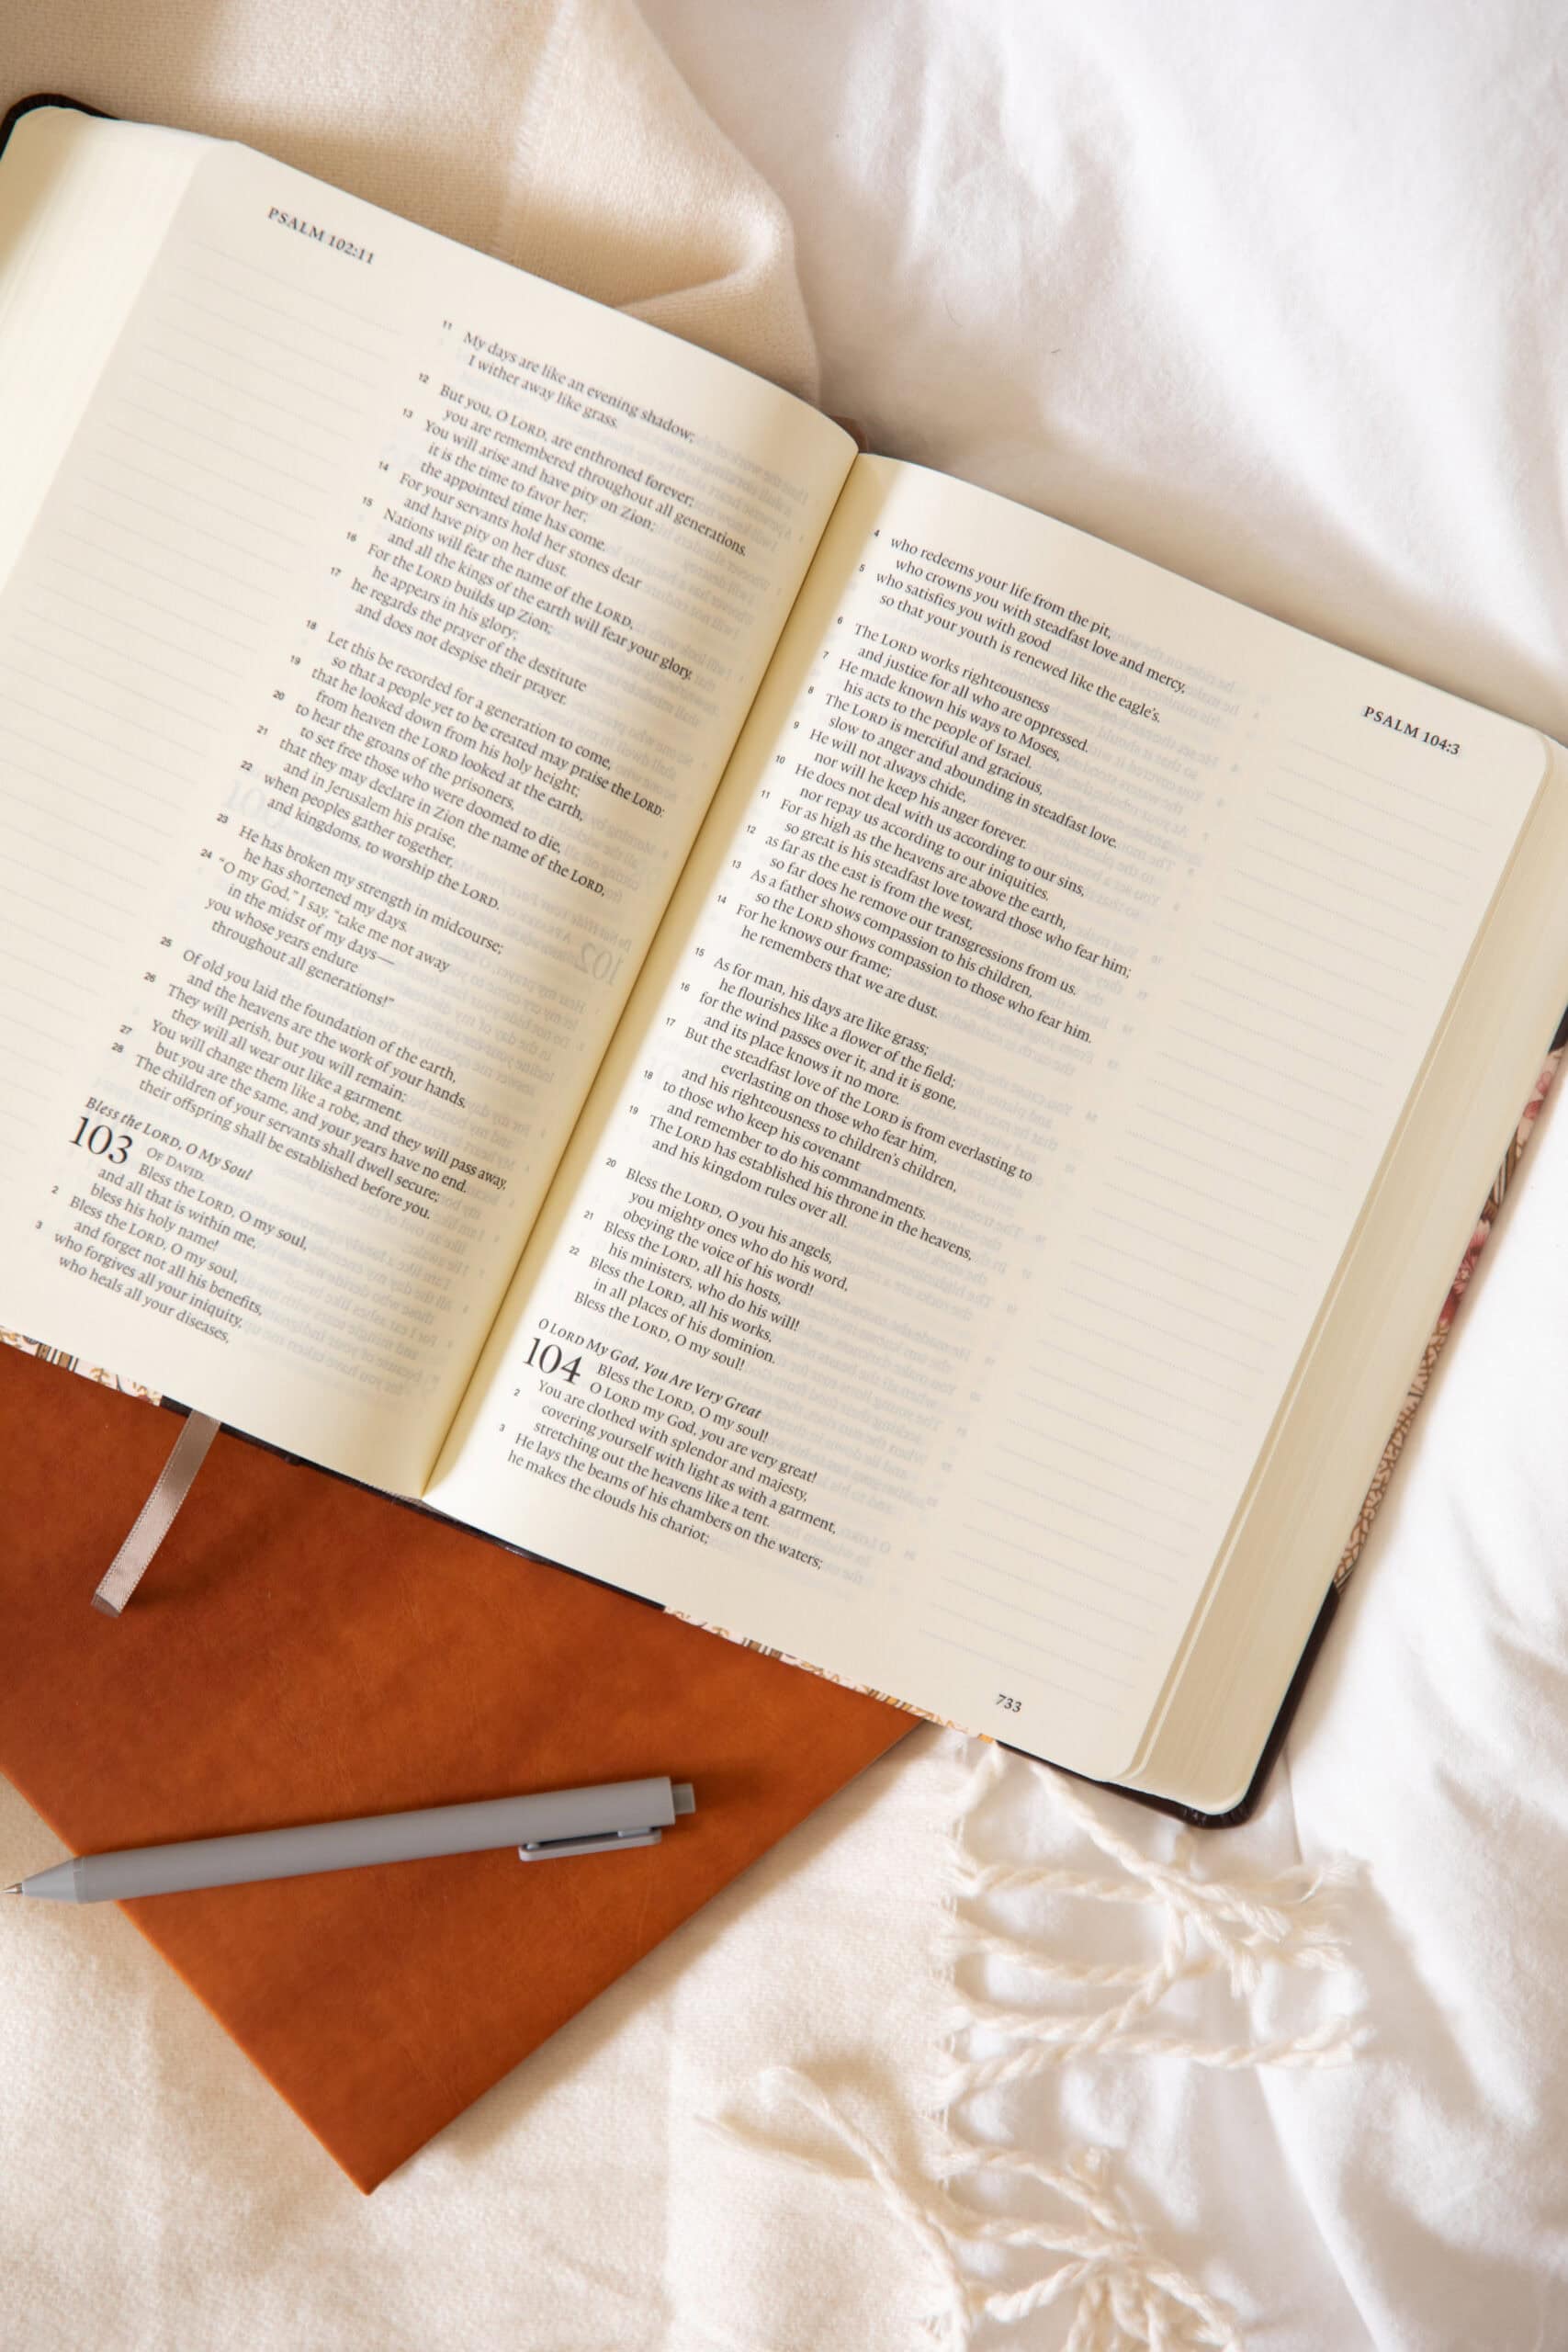 PSALM 102:11
11 My days are like an evening shadow;
I wither away like grass.
12 But you, O LORD, are enthroned forever;
you are remembered throughout all generations.
13 You will arise and have pity on Zion;
it is the time to favor her;
the appointed time has come.
14 For your servants hold her stones dear
and have pity on her dust.
15 Nations will fear the name of the LORD,
and all the kings of the earth will fear your glory.
16 For the LORD builds up Zion;
he appears in his glory;
17 he regards the prayer of the destitute
and does not despise their prayer.
18 Let this be recorded for a generation to come,
so that a people yet to be created may praise the LORD:
19 that he looked down from his holy height;
from heaven the LORD looked at the earth,
20 to hear the groans of the prisoners,
to set free those who were doomed to die,
21 that they may declare in Zion the name of the LORD,
and in Jerusalem his praise,
22 when peoples gather together,
and kingdoms, to worship the LORD.
23 He has broken my strength in midcourse;
he has shortened my days.
24 "O my God," I say, "take me not away
in the midst of my days—
you whose years endure
throughout all generations!"
25 Of old you laid the foundation of the earth,
and the heavens are the work of your hands.
26 They will perish, but you will remain;
they will all wear out like a garment.
You will change them like a robe, and they will pass away,
27 but you are the same, and your years have no end.
28 The children of your servants shall dwell secure;
their offspring shall be established before you.
Bless the LORD, O My Soul
103 OF DAVID.
Bless the LORD, O my soul,
and all that is within me,
bless his holy name!
2 Bless the LORD, O my soul,
and forget not all his benefits,
3 who forgives all your iniquity,
who heals all your diseases,
PSALM 104:3
4 who redeems your life from the pit,
who crowns you with steadfast love and mercy,
5 who satisfies you with good
so that your youth is renewed like the eagle's.
6 The LORD works righteousness
and justice for all who are oppressed.
7 He made known his ways to Moses,
his acts to the people of Israel.
8 The LORD is merciful and gracious,
slow to anger and abounding in steadfast love.
9 He will not always chide,
nor will he keep his anger forever.
10 He does not deal with us according to our sins,
nor repay us according to our iniquities.
11 For as high as the heavens are above the earth,
so great is his steadfast love toward those who fear him;
12 as far as the east is from the west,
so far does he remove our transgressions from us.
13 As a father shows compassion to his children,
so the LORD shows compassion to those who fear him.
14 For he knows our frame;
he remembers that we are dust.
15 As for man, his days are like grass;
he flourishes like a flower of the field;
16 for the wind passes over it, and it is gone,
and its place knows it no more.
17 But the steadfast love of the LORD is from everlasting to
everlasting on those who fear him,
and his righteousness to children's children,
18 to those who keep his covenant
and remember to do his commandments.
19 The LORD has established his throne in the heavens,
and his kingdom rules over all.
20 Bless the LORD, O you his angels,
you mighty ones who do his word,
obeying the voice of his word!
21 Bless the LORD, all his hosts,
his ministers, who do his will!
22 Bless the LORD, all his works,
in all places of his dominion.
Bless the LORD, O my soul!
O LORD My God, You Are Very Great
104 Bless the LORD, O my soul!
O LORD my God, you are very great!
You are clothed with splendor and majesty,
2 covering yourself with light as with a garment,
stretching out the heavens like a tent.
3 He lays the beams of his chambers on the waters;
he makes the clouds his chariot;
733